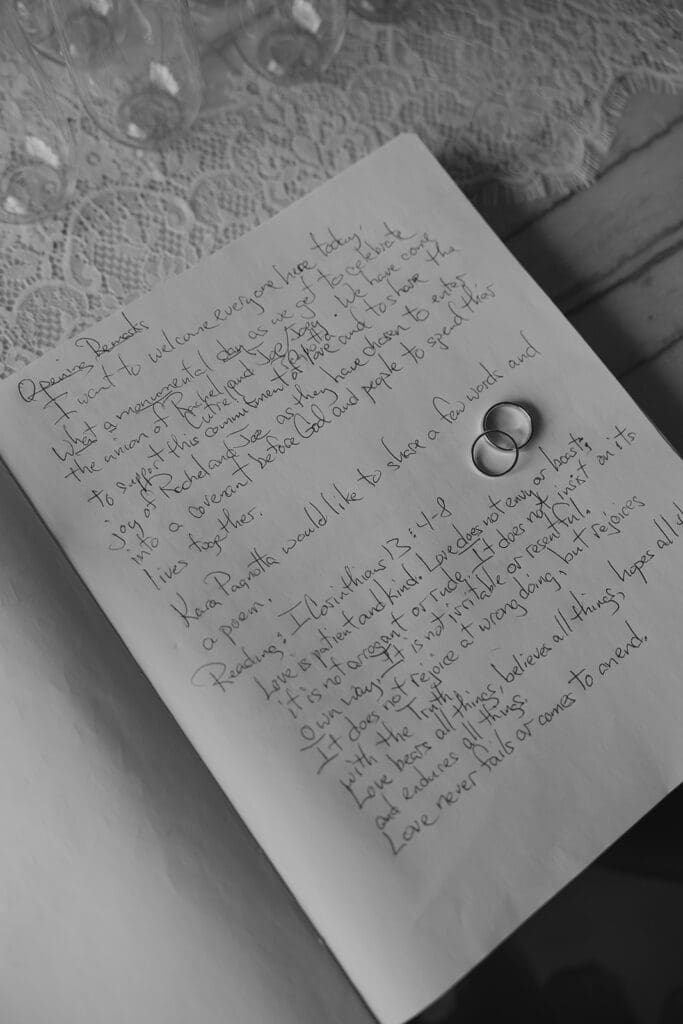 Opening Remarks
I want to welcome everyone here today.
What a monumental day as we get to celebrate
the union of Rachel and Joe/Joey. We have come
to support this commitment of love and to share the
joy of Rachel and Joe as they have chosen to enter
into a covenant before God and people to spend their
lives together.
Kara Pagnotta would like to share a few words and
a poem.
Reading: I Corinthians 13:4-8
Love is patient and kind. Love does not envy or boast;
it is not arrogant or rude. It does not insist on its
own way. It is not irritable or resentful.
It does not rejoice at wrong doing, but rejoices
with the Truth.
Love bears all things, believes all things, hopes all
and endures all things.
Love never fails or comes to an end.